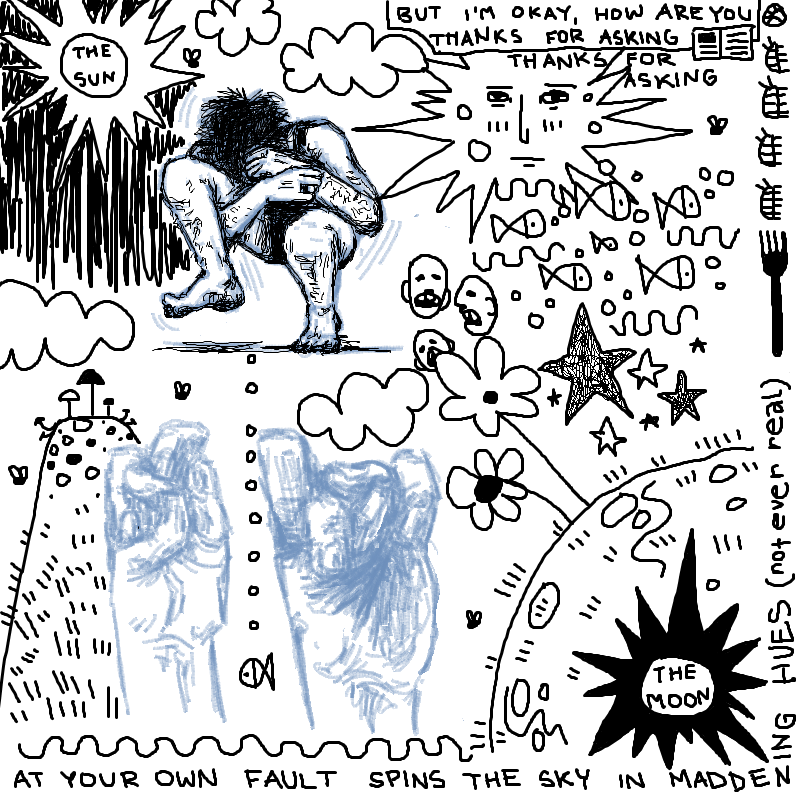 THE
SUN
BUT I'M OKAY, HOW ARE YOU
THANKS FOR ASKING
THANKS FOR
ASKING
THE
MOON
AT YOUR OWN FAULT SPINS THE SKY IN MADDENING HUES (not ever real)